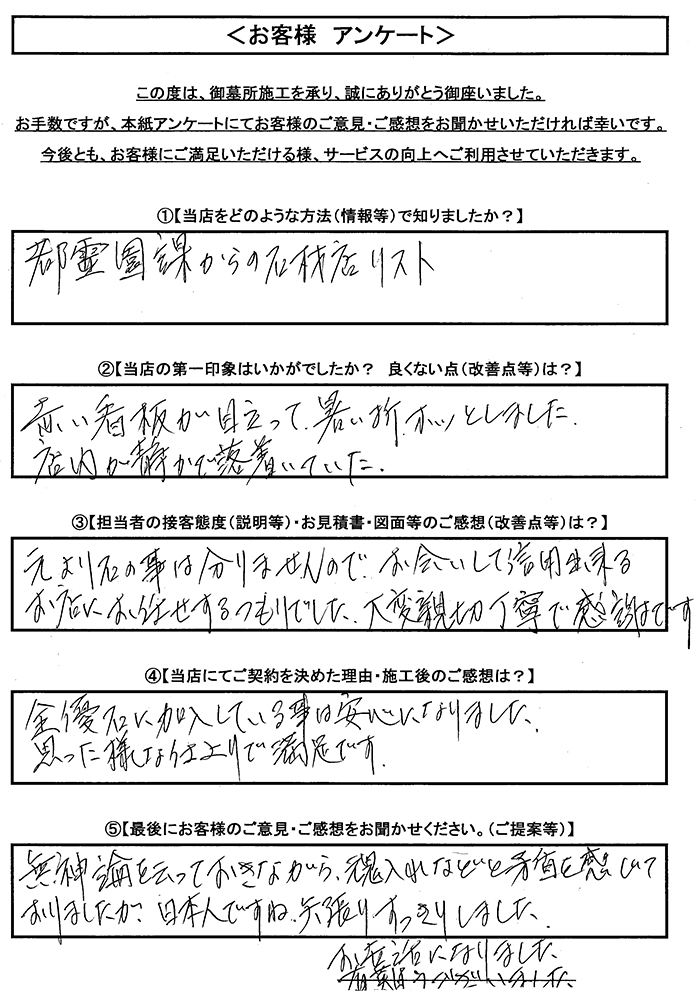 ＜お客様 アンケート＞
この度は、御墓所施工を承り、誠にありがとう御座いました。
お手数ですが、本紙アンケートにてお客様のご意見・ご感想をお聞かせいただければ幸いです。
今後とも、お客様にご満足いただける様、サービスの向上へご利用させていただきます。
①【当店をどのような方法（情報等）で知りましたか？】
都霊園課からの石材店リスト
②【当店の第一印象はいかがでしたか？ 良くない点（改善点等）は？】
赤い看板が目立って、暑い折、ホッとしました。
店内が静かで落着いていた。
③【担当者の接客態度（説明等）・お見積書・図面等のご感想（改善点等）は？】
元より石の事は分りませんので、お会いして信用出来る
お店にお任せするつもりでした、大変親切丁寧で感謝です
④【当店にてご契約を決めた理由・施工後のご感想は？】
全優石に加入している事は安心になりました、
思った様な仕上りで満足です。
⑤【最後にお客様のご意見・ご感想をお聞かせください。（ご提案等）】
無神論を云っておきながら、魂入れなどと矛盾を感じて
おりましたが、日本人ですね、矢張りすっきりしました、
お世話になりました